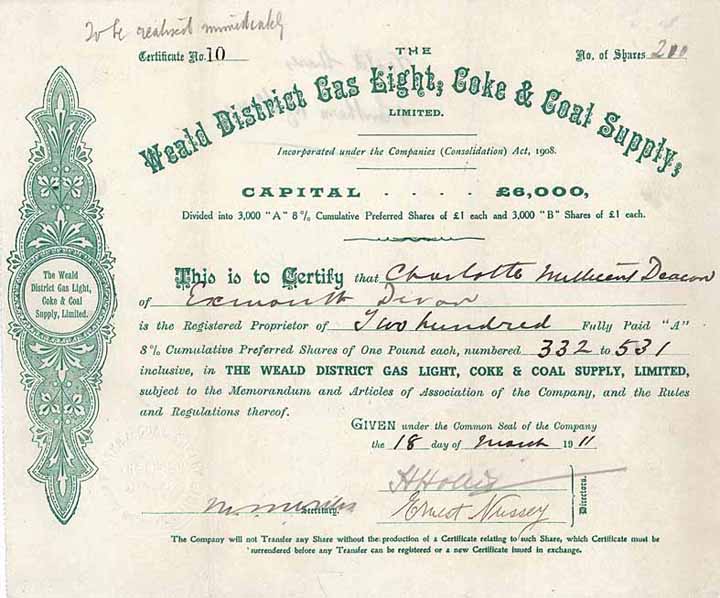 To be realised immediately
Certificate No. 10
No. of Shares 200
THE
Weald District Gas Light, Coke & Coal Supply,
LIMITED.
Incorporated under the Companies (Consolidation) Act, 1908.
CAPITAL . . . . £6,000,
Divided into 3,000 "A" 8% Cumulative Preferred Shares of £1 each and 3,000 "B" Shares of £1 each.
The Weald
District Gas Light,
Coke & Coal
Supply, Limited.
This is to Certify that Charlotte Millicent Deacon
of Exmouth Devon
is the Registered Proprietor of Two hundred Fully Paid "A"
8% Cumulative Preferred Shares of One Pound each, numbered 332 to 531
inclusive, in THE WEALD DISTRICT GAS LIGHT, COKE & COAL SUPPLY, LIMITED,
subject to the Memorandum and Articles of Association of the Company, and the Rules
and Regulations thereof.
GIVEN under the Common Seal of the Company
the 18 day of March 1911
Secretary.
Ernest Nussey
Directors.
The Company will not Transfer any Share without the production of a Certificate relating to such Share, which Certificate must be
surrendered before any Transfer can be registered or a new Certificate issued in exchange.